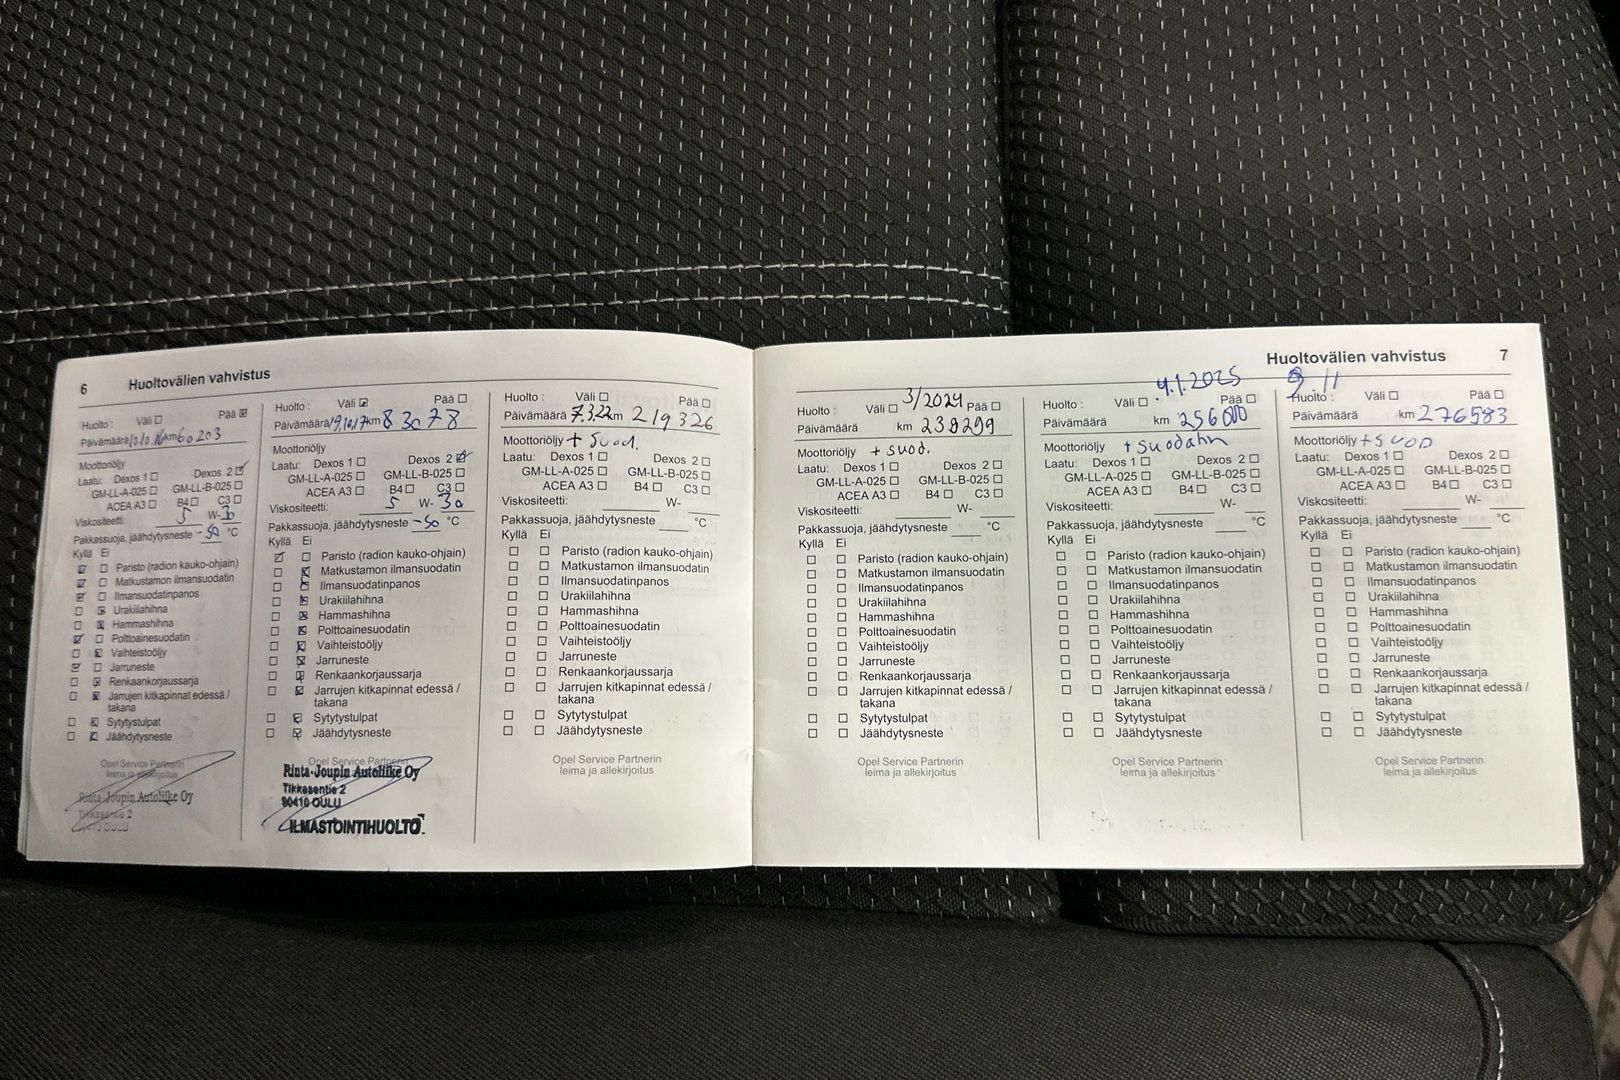 6 Huoltovälien vahvistus
Huolto : Väli Pää
Päivämäärä 10.10.16 km 60203
Moottoriöljy
Laatu: Dexos 1 Dexos 2
GM-LL-A-025 GM-LL-B-025
ACEA A3 B4 C3
Viskositeetti: 5 W- 30
Pakkassuoja, jäähdytysneste -50 °C
Kyllä Ei
Paristo (radion kauko-ohjain)
Matkustamon ilmansuodatin
Ilmansuodatinpanos
Urakiilahihna
Hammashihna
Polttoainesuodatin
Vaihteistoöljy
Jarruneste
Renkaankorjaussarja
Jarrujen kitkapinnat edessä /
takana
Sytytystulpat
Jäähdytysneste
Opel Service Partnerin
leima ja allekirjoitus
Rinta-Joupin Autoliike Oy
Tikkasentie 2
90410 OULU
Huolto : Väli Pää
Päivämäärä 19.10.17 km 83078
Moottoriöljy
Laatu: Dexos 1 Dexos 2
GM-LL-A-025 GM-LL-B-025
ACEA A3 B4 C3
Viskositeetti: 5 W- 30
Pakkassuoja, jäähdytysneste -50 °C
Kyllä Ei
Paristo (radion kauko-ohjain)
Matkustamon ilmansuodatin
Ilmansuodatinpanos
Urakiilahihna
Hammashihna
Polttoainesuodatin
Vaihteistoöljy
Jarruneste
Renkaankorjaussarja
Jarrujen kitkapinnat edessä /
takana
Sytytystulpat
Jäähdytysneste
Opel Service Partnerin
Rinta-Joupin Autoliike Oy
Tikkasentie 2
90410 OULU
ILMASTOINTIHUOLTO
Huolto : Väli Pää
Päivämäärä 7.3.22 km 219326
Moottoriöljy + Suod.
Laatu: Dexos 1 Dexos 2
GM-LL-A-025 GM-LL-B-025
ACEA A3 B4 C3
Viskositeetti: W-
Pakkassuoja, jäähdytysneste °C
Kyllä Ei
Paristo (radion kauko-ohjain)
Matkustamon ilmansuodatin
Ilmansuodatinpanos
Urakiilahihna
Hammashihna
Polttoainesuodatin
Vaihteistoöljy
Jarruneste
Renkaankorjaussarja
Jarrujen kitkapinnat edessä /
takana
Sytytystulpat
Jäähdytysneste
Opel Service Partnerin
leima ja allekirjoitus
Huoltovälien vahvistus 7
Huolto : Väli 3/2024 Pää
Päivämäärä km 239299
Moottoriöljy + suod.
Laatu: Dexos 1 Dexos 2
GM-LL-A-025 GM-LL-B-025
ACEA A3 B4 C3
Viskositeetti: W-
Pakkassuoja, jäähdytysneste °C
Kyllä Ei
Paristo (radion kauko-ohjain)
Matkustamon ilmansuodatin
Ilmansuodatinpanos
Urakiilahihna
Hammashihna
Polttoainesuodatin
Vaihteistoöljy
Jarruneste
Renkaankorjaussarja
Jarrujen kitkapinnat edessä /
takana
Sytytystulpat
Jäähdytysneste
Opel Service Partnerin
leima ja allekirjoitus
4.1.2025
Huolto : Väli Pää
Päivämäärä km 256000
Moottoriöljy + suodatin
Laatu: Dexos 1 Dexos 2
GM-LL-A-025 GM-LL-B-025
ACEA A3 B4 C3
Viskositeetti: W-
Pakkassuoja, jäähdytysneste °C
Kyllä Ei
Paristo (radion kauko-ohjain)
Matkustamon ilmansuodatin
Ilmansuodatinpanos
Urakiilahihna
Hammashihna
Polttoainesuodatin
Vaihteistoöljy
Jarruneste
Renkaankorjaussarja
Jarrujen kitkapinnat edessä /
takana
Sytytystulpat
Jäähdytysneste
Opel Service Partnerin
leima ja allekirjoitus
9.11
Huolto : Väli Pää
Päivämäärä km 276583
Moottoriöljy + SUOD
Laatu: Dexos 1 Dexos 2
GM-LL-A-025 GM-LL-B-025
ACEA A3 B4 C3
Viskositeetti: W-
Pakkassuoja, jäähdytysneste °C
Kyllä Ei
Paristo (radion kauko-ohjain)
Matkustamon ilmansuodatin
Ilmansuodatinpanos
Urakiilahihna
Hammashihna
Polttoainesuodatin
Vaihteistoöljy
Jarruneste
Renkaankorjaussarja
Jarrujen kitkapinnat edessä /
takana
Sytytystulpat
Jäähdytysneste
Opel Service Partnerin
leima ja allekirjoitus